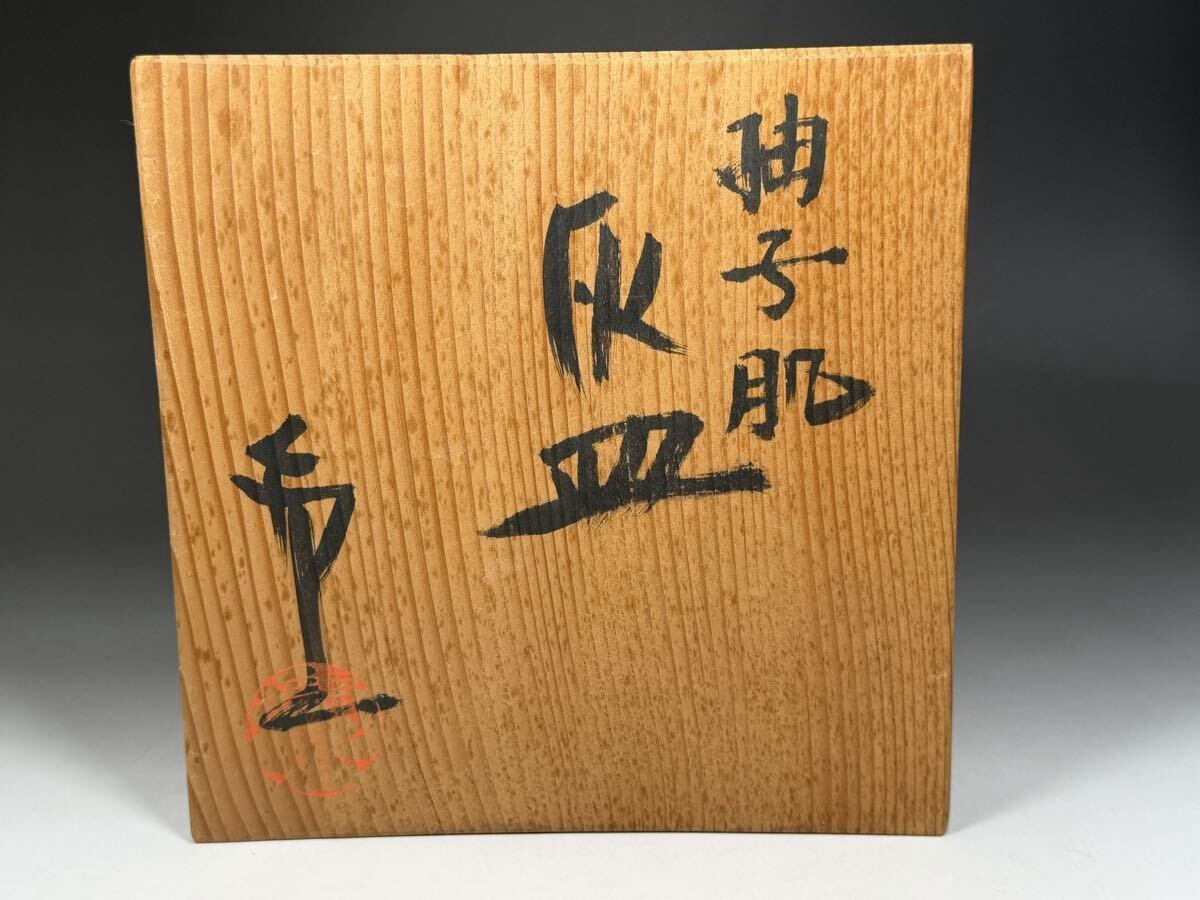 柚子肌
灰皿